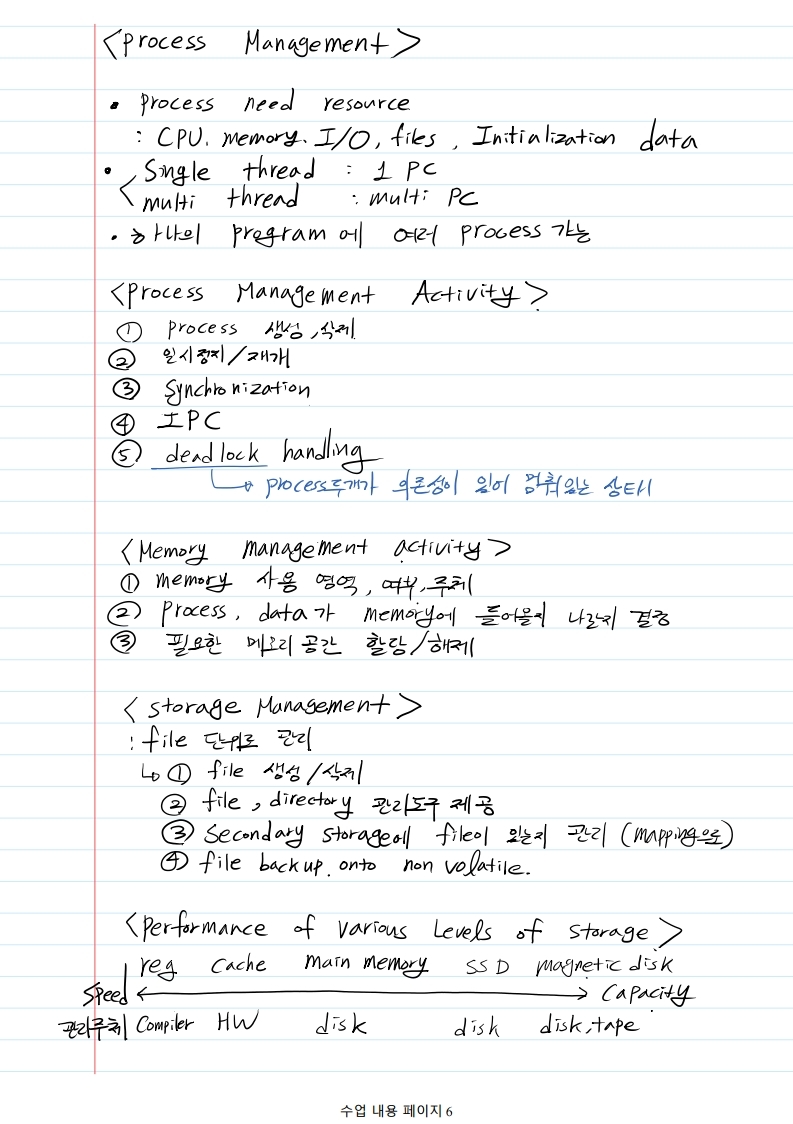 <process Management>
• process need resource
: CPU. memory. I/O, files, Initialization data
• Single thread : 1 PC
< multi thread : multi PC
• 하나의 program에 여러 process 가능
<process Management Activity>
① process 생성, 삭제
② 일시정지/재개
③ Synchronization
④ IPC
⑤ deadlock handling
↳ process두개가 의존성이 있어 멈춰있는 상태
<Memory management activity>
① memory 사용 영역, 여부, 주체
② process, data가 memory에 들어올지 나갈지 결정
③ 필요한 메모리 공간 할당/해제
<storage Management>
: file 단위로 관리
↳ ① file 생성/삭제
② file, directory 관리도구 제공
③ Secondary storage에 file이 있는지 관리 (mapping으로)
④ file backup onto non volatile.
<performance of various Levels of storage>
reg Cache main memory SSD magnetic disk
Speed ↔ Capacity
관리주체 Compiler HW disk disk disk, tape
수업 내용 페이지 6